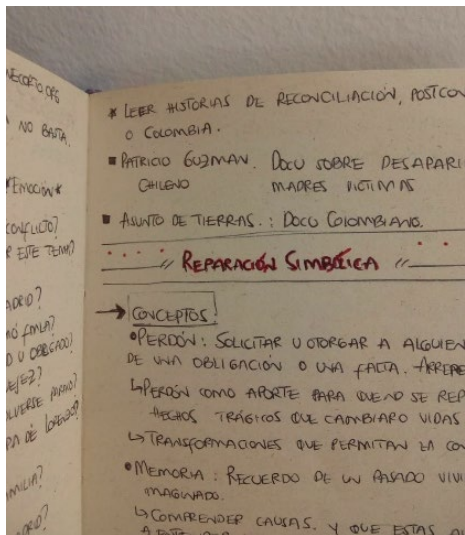 NECORTO.ORG
NO BASTA.
*EMOCIÓN*
CONFLICTO?
ESTE TEMA?
* LEER HISTORIAS DE RECONCILIACIÓN, POSTCON
O COLOMBIA.
■ PATRICIO GUZMAN. DOCU SOBRE DESAPARI
CHILENO MADRES VICTIMAS
■ ASUNTO DE TIERRAS.: DOCU COLOMBIANO.
// REPARACIÓN SIMBÓLICA //
→ CONCEPTOS
• PERDÓN: SOLICITAR U OTORGAR A ALGUIEN
DE UNA OBLIGACIÓN O UNA FALTA. ARREPE
↳ PERDÓN COMO APORTE PARA QUE NO SE REP
HECHOS TRÁGICOS QUE CAMBIARO VIDAS
↳ TRANSFORMACIONES QUE PERMITAN LA CO
• MEMORIA: RECUERDO DE UN PASADO VIVI
IMAGINADO.
↳ COMPRENDER CAUSAS. Y QUE ESTAS